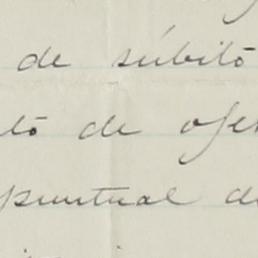 de súbito
to de ofe
puntual de